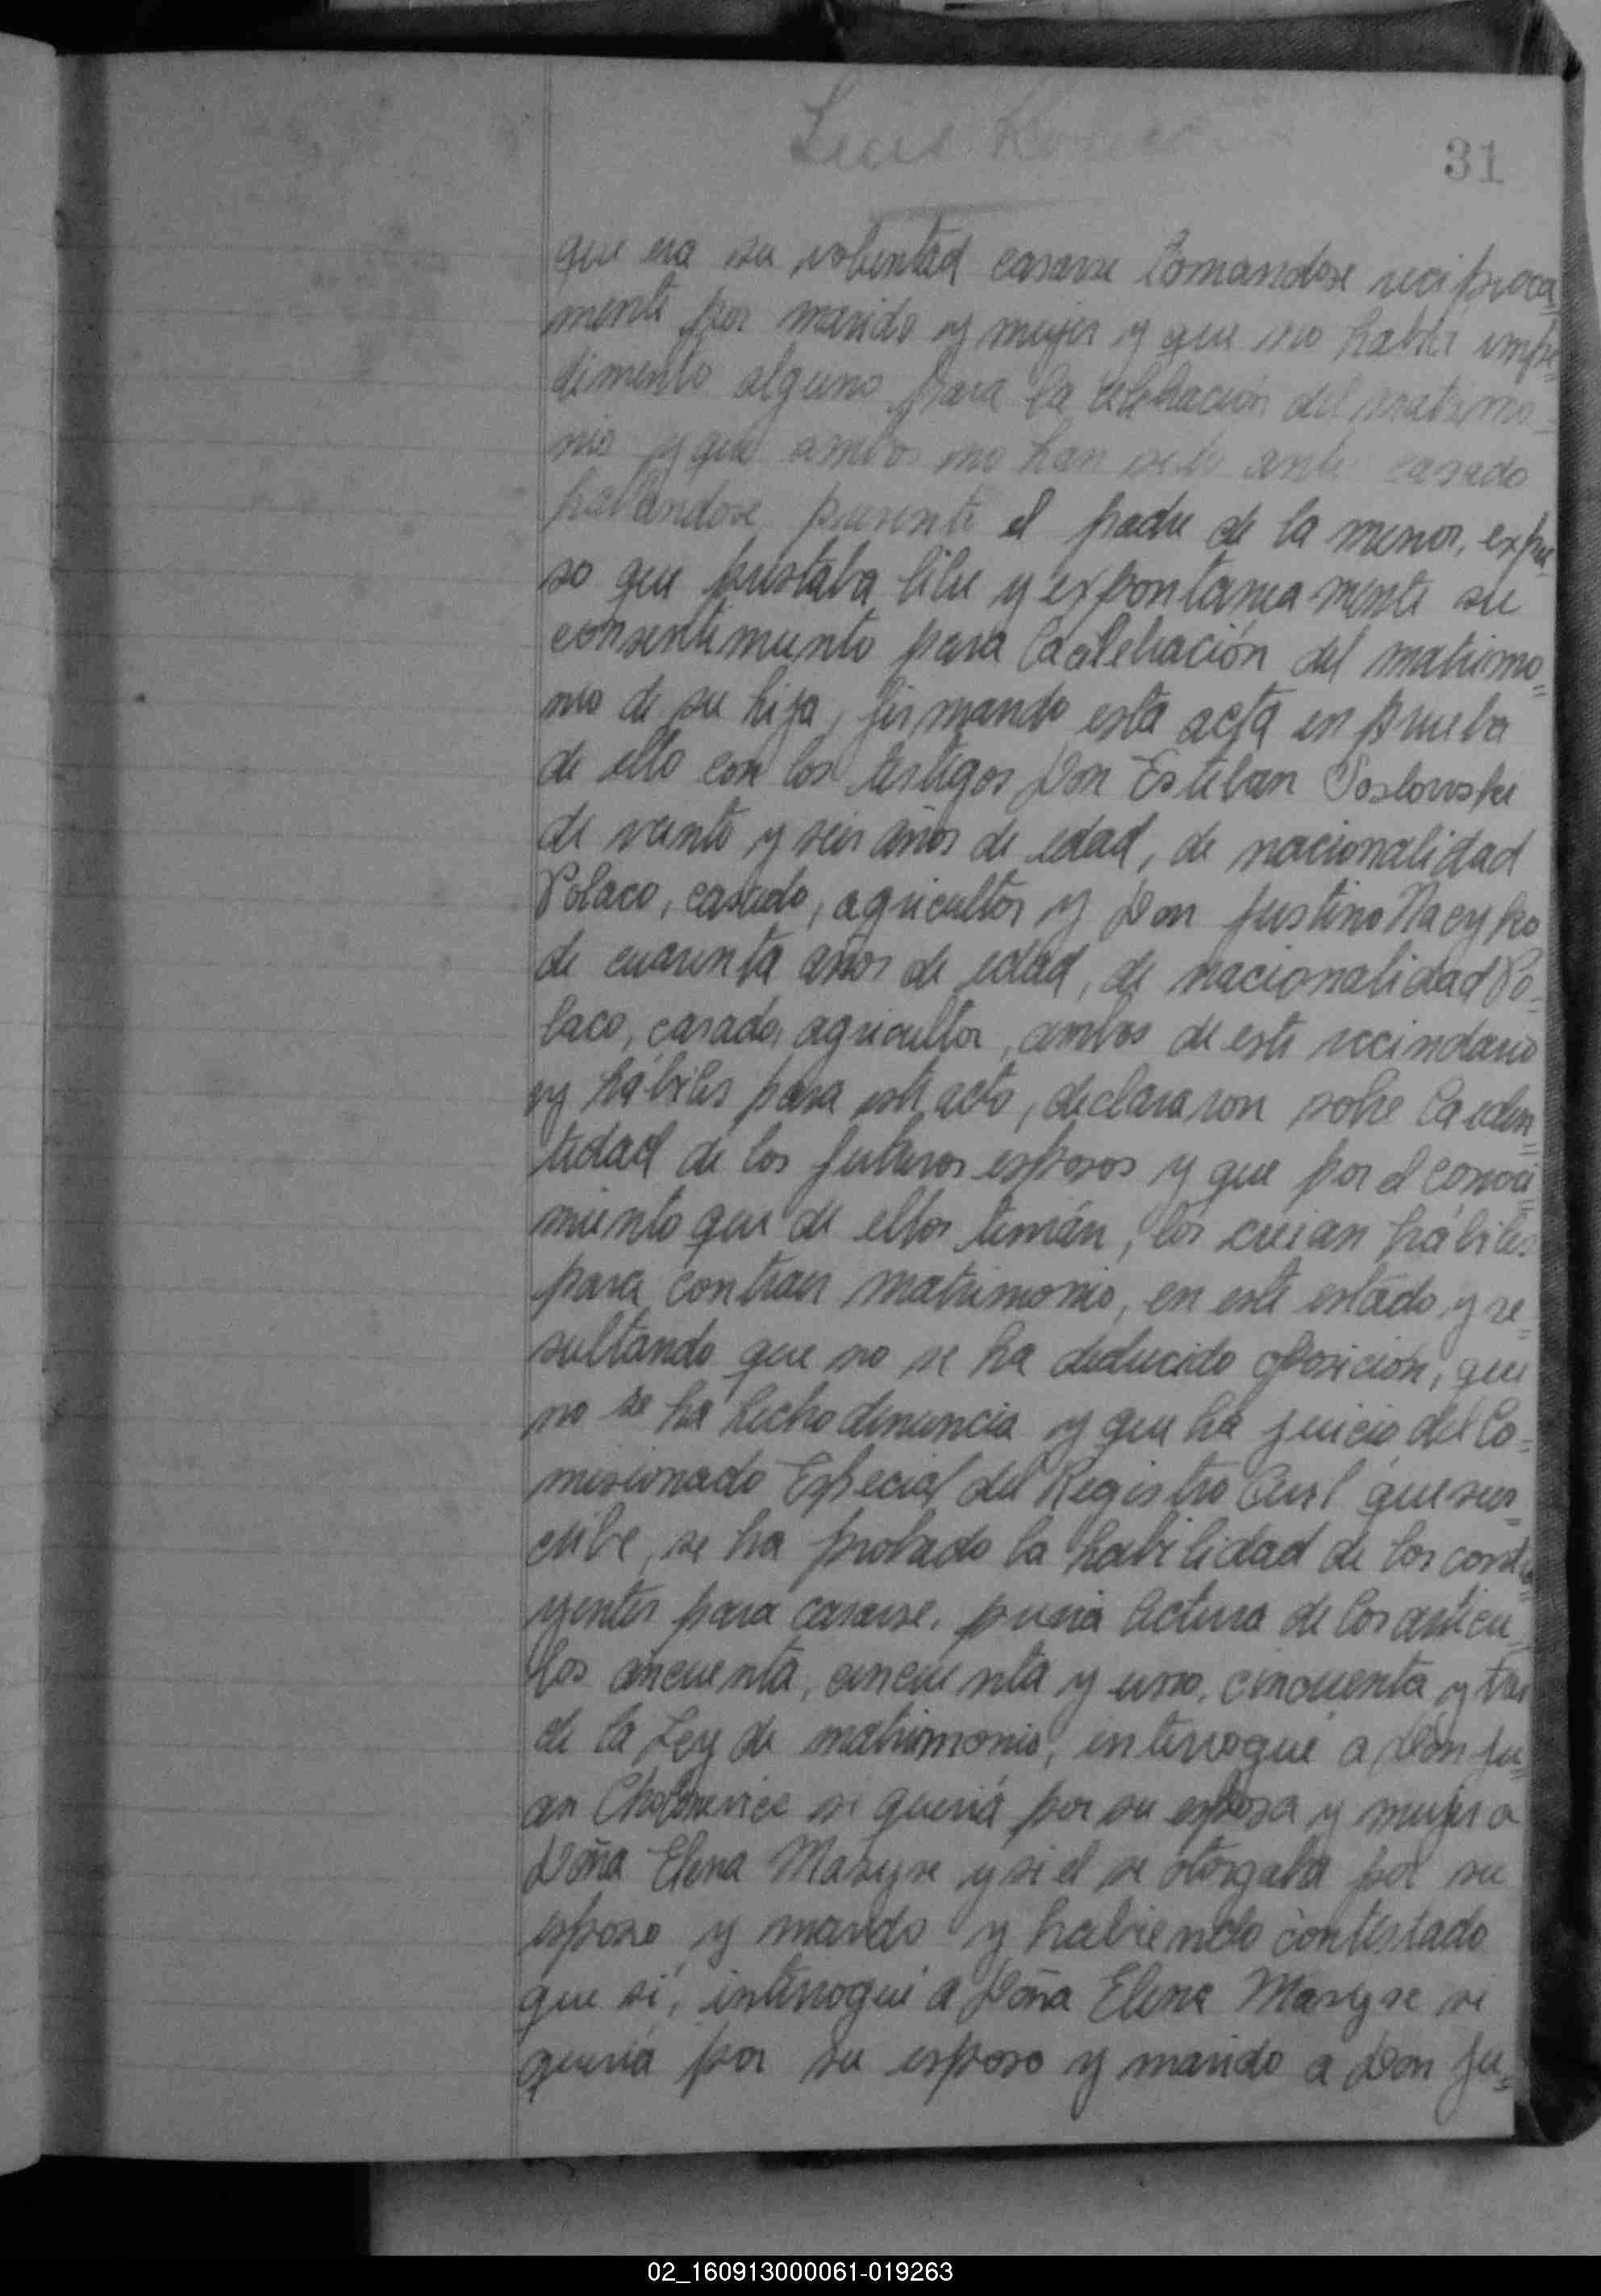 Luis
31
que era su voluntad casarse tomandose reciproca-
mente por marido y mujer y que no habia impe-
dimento alguno para la celebración del matrimo-
nio y que ambos no han sido ante casado
hallandose presente el padre de la menor, expu-
so que prestaba libre y expontanea mente su
consentimiento para la celebración del matrimo=
nio de su hija, firmando esta acta en prueba
de ello con los testigos Don Esteban Poslowski
de veinte y seis años de edad, de nacionalidad
Polaco, casado, agricultor y Don Justino
de cuarenta años de edad, de nacionalidad Po-
laco, casado, agricultor, ambos de este vecindario
y hábiles para este acto, declararon sobre la iden=
tidad de los futuros esposos y que por el conoci=
miento que de ellos tenián, los creian hábiles
para contraer matrimonio, en este estado y re=
sultando que no se ha deducido oposición, que
no se ha hecho denuncia y que ha juicio del Co=
misionado Especial del Registro Civil que sus=
cribe, se ha probado la habilidad de los contra
yentes para casarse. previa lectura de los articu-
los cincuenta, cincuenta y uno, cincuenta y tres
de la Ley de matrimonio, interrogué a Don Ju=
an si queriá por su esposa y mujer a
Doña Elena Mazyse y si el se otorgaba por su
esposo y marido y habiendo contestado
que si, interrogué a Doña Elena Mazyse si
queriá por su esposo y marido a Don Ju=
02_160913000061-019263